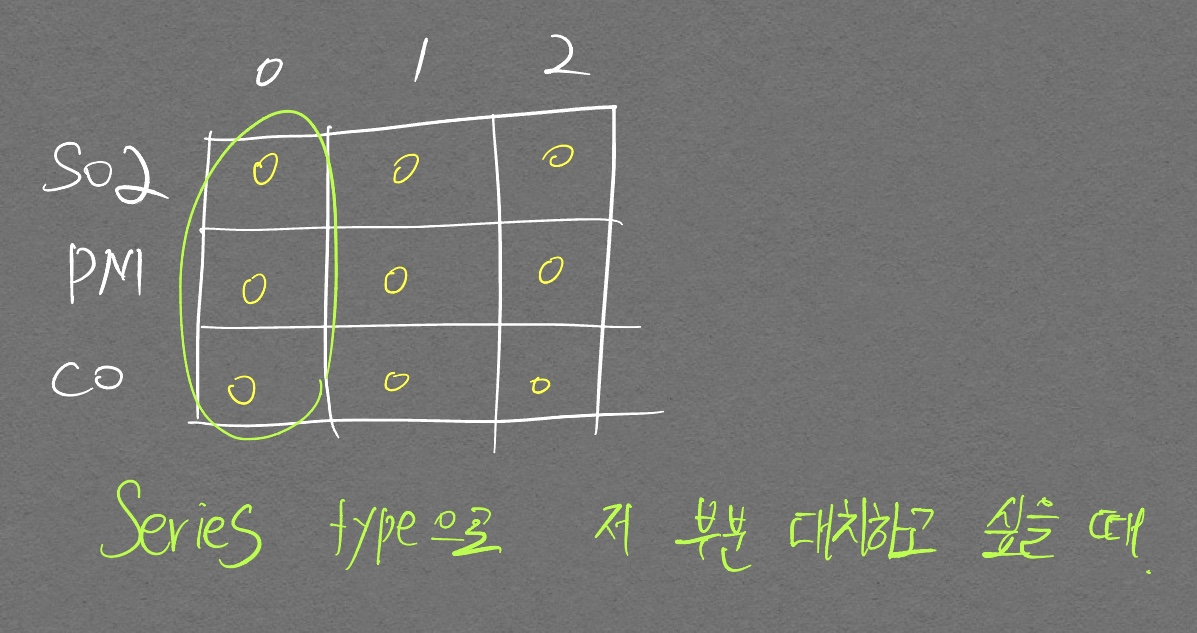 0 1 2
SO2 0 0 0
PM 0 0 0
CO 0 0 0
Series type으로 저 부분 대치하고 싶을 때.